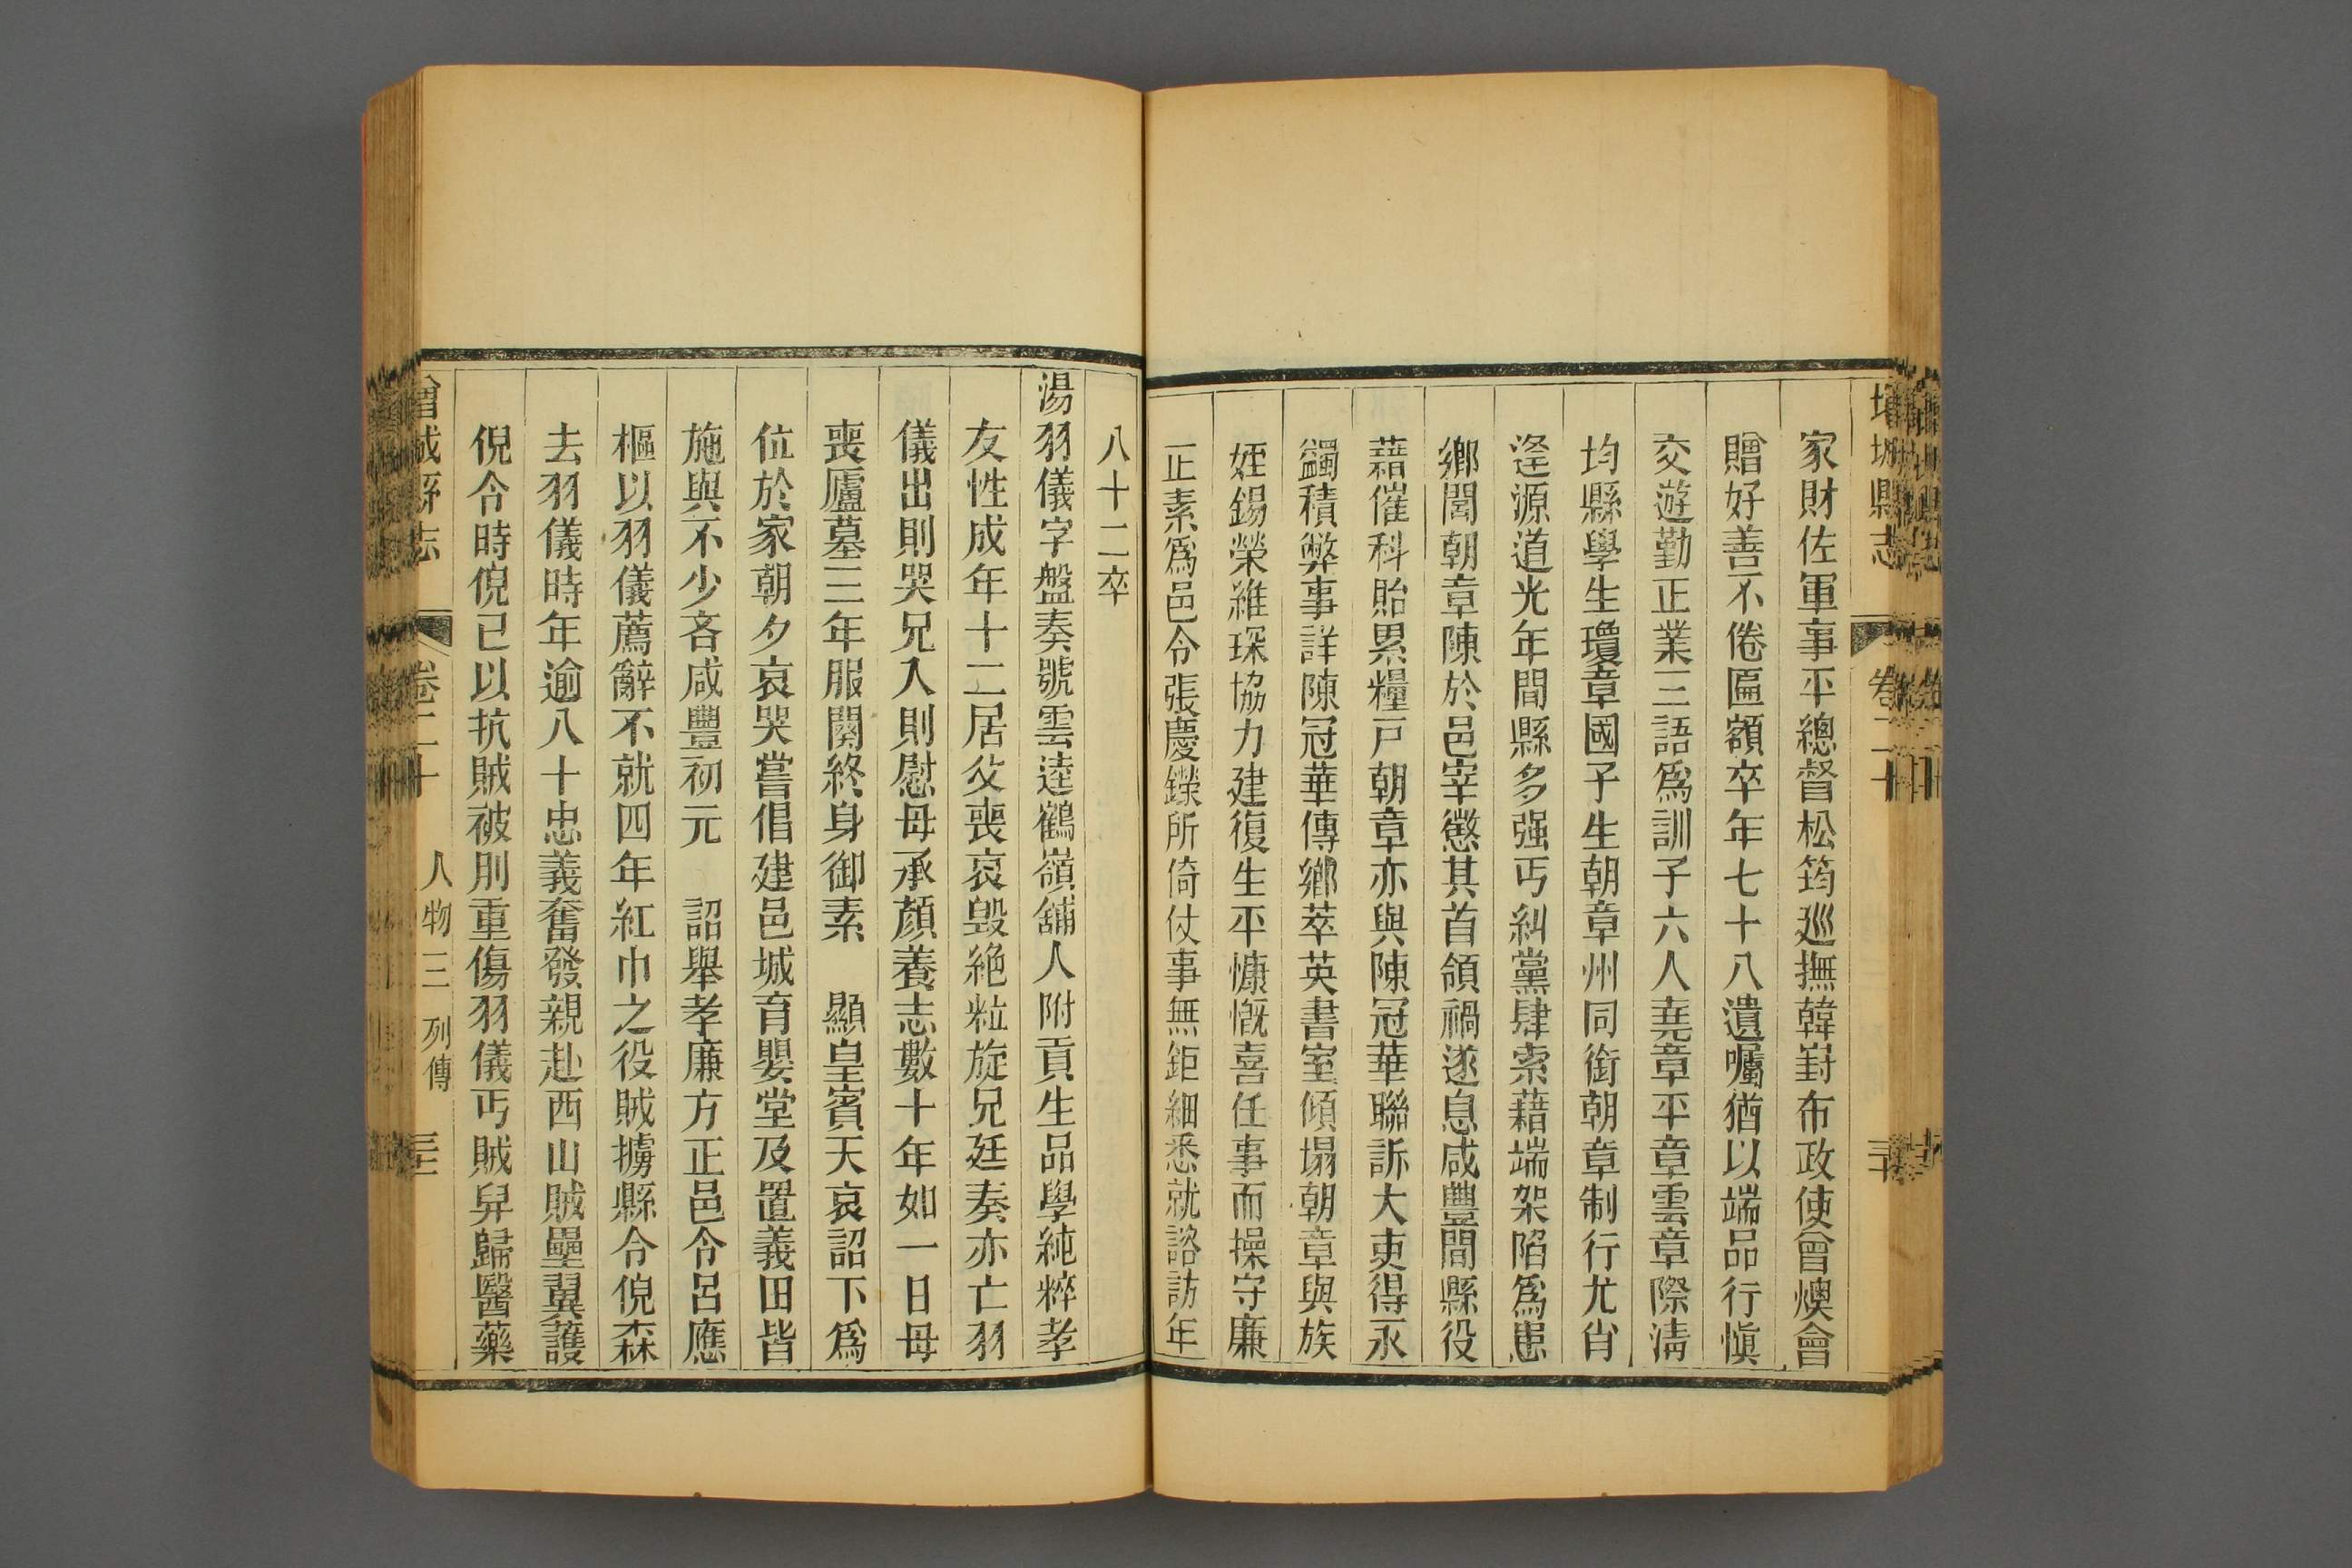 增城縣志
卷二十
三十
家財佐軍事平總督松筠巡撫韓崶布政使曾燠會
贈好善不倦匾額卒年七十八遺囑猶以端品行愼
交遊勤正業三語爲訓子六人堯章平章雲章際淸
均縣學生瓊章國子生朝章州同銜朝章制行尤肖
逢源道光年間縣多强丐糾黨肆索藉端架陷爲患
鄉閭朝章陳於邑宰懲其首領禍遂息咸豐間縣役
藉催科貽累糧戸朝章亦與陳冠華聯訴大吏得永
蠲積弊事詳陳冠華傳鄉萃英書室傾塌朝章與族
姪錫榮維琛協力建復生平慷慨喜任事而操守廉
正素爲邑令張慶鑅所倚仗事無鉅細悉就諮訪年
八十二卒
湯羽儀字盤奏號雲逵鶴嶺舖人附貢生品學純粹孝
友性成年十二居父喪哀毁絶粒旋兄廷奏亦亡羽
儀出則哭兄入則慰母承顏養志數十年如一日母
喪廬墓三年服闋終身御素 顯皇賓天哀詔下爲
位於家朝夕哀哭嘗倡建邑城育嬰堂及置義田皆
施與不少吝咸豐初元 詔舉孝廉方正邑令呂應
樞以羽儀薦辭不就四年紅巾之役賊擄縣令倪森
去羽儀時年逾八十忠義奮發親赴西山賊壘翼護
倪令時倪已以抗賊被刖重傷羽儀丐賊舁歸醫藥
增城縣志
卷二十
人物三 列傳
三十一